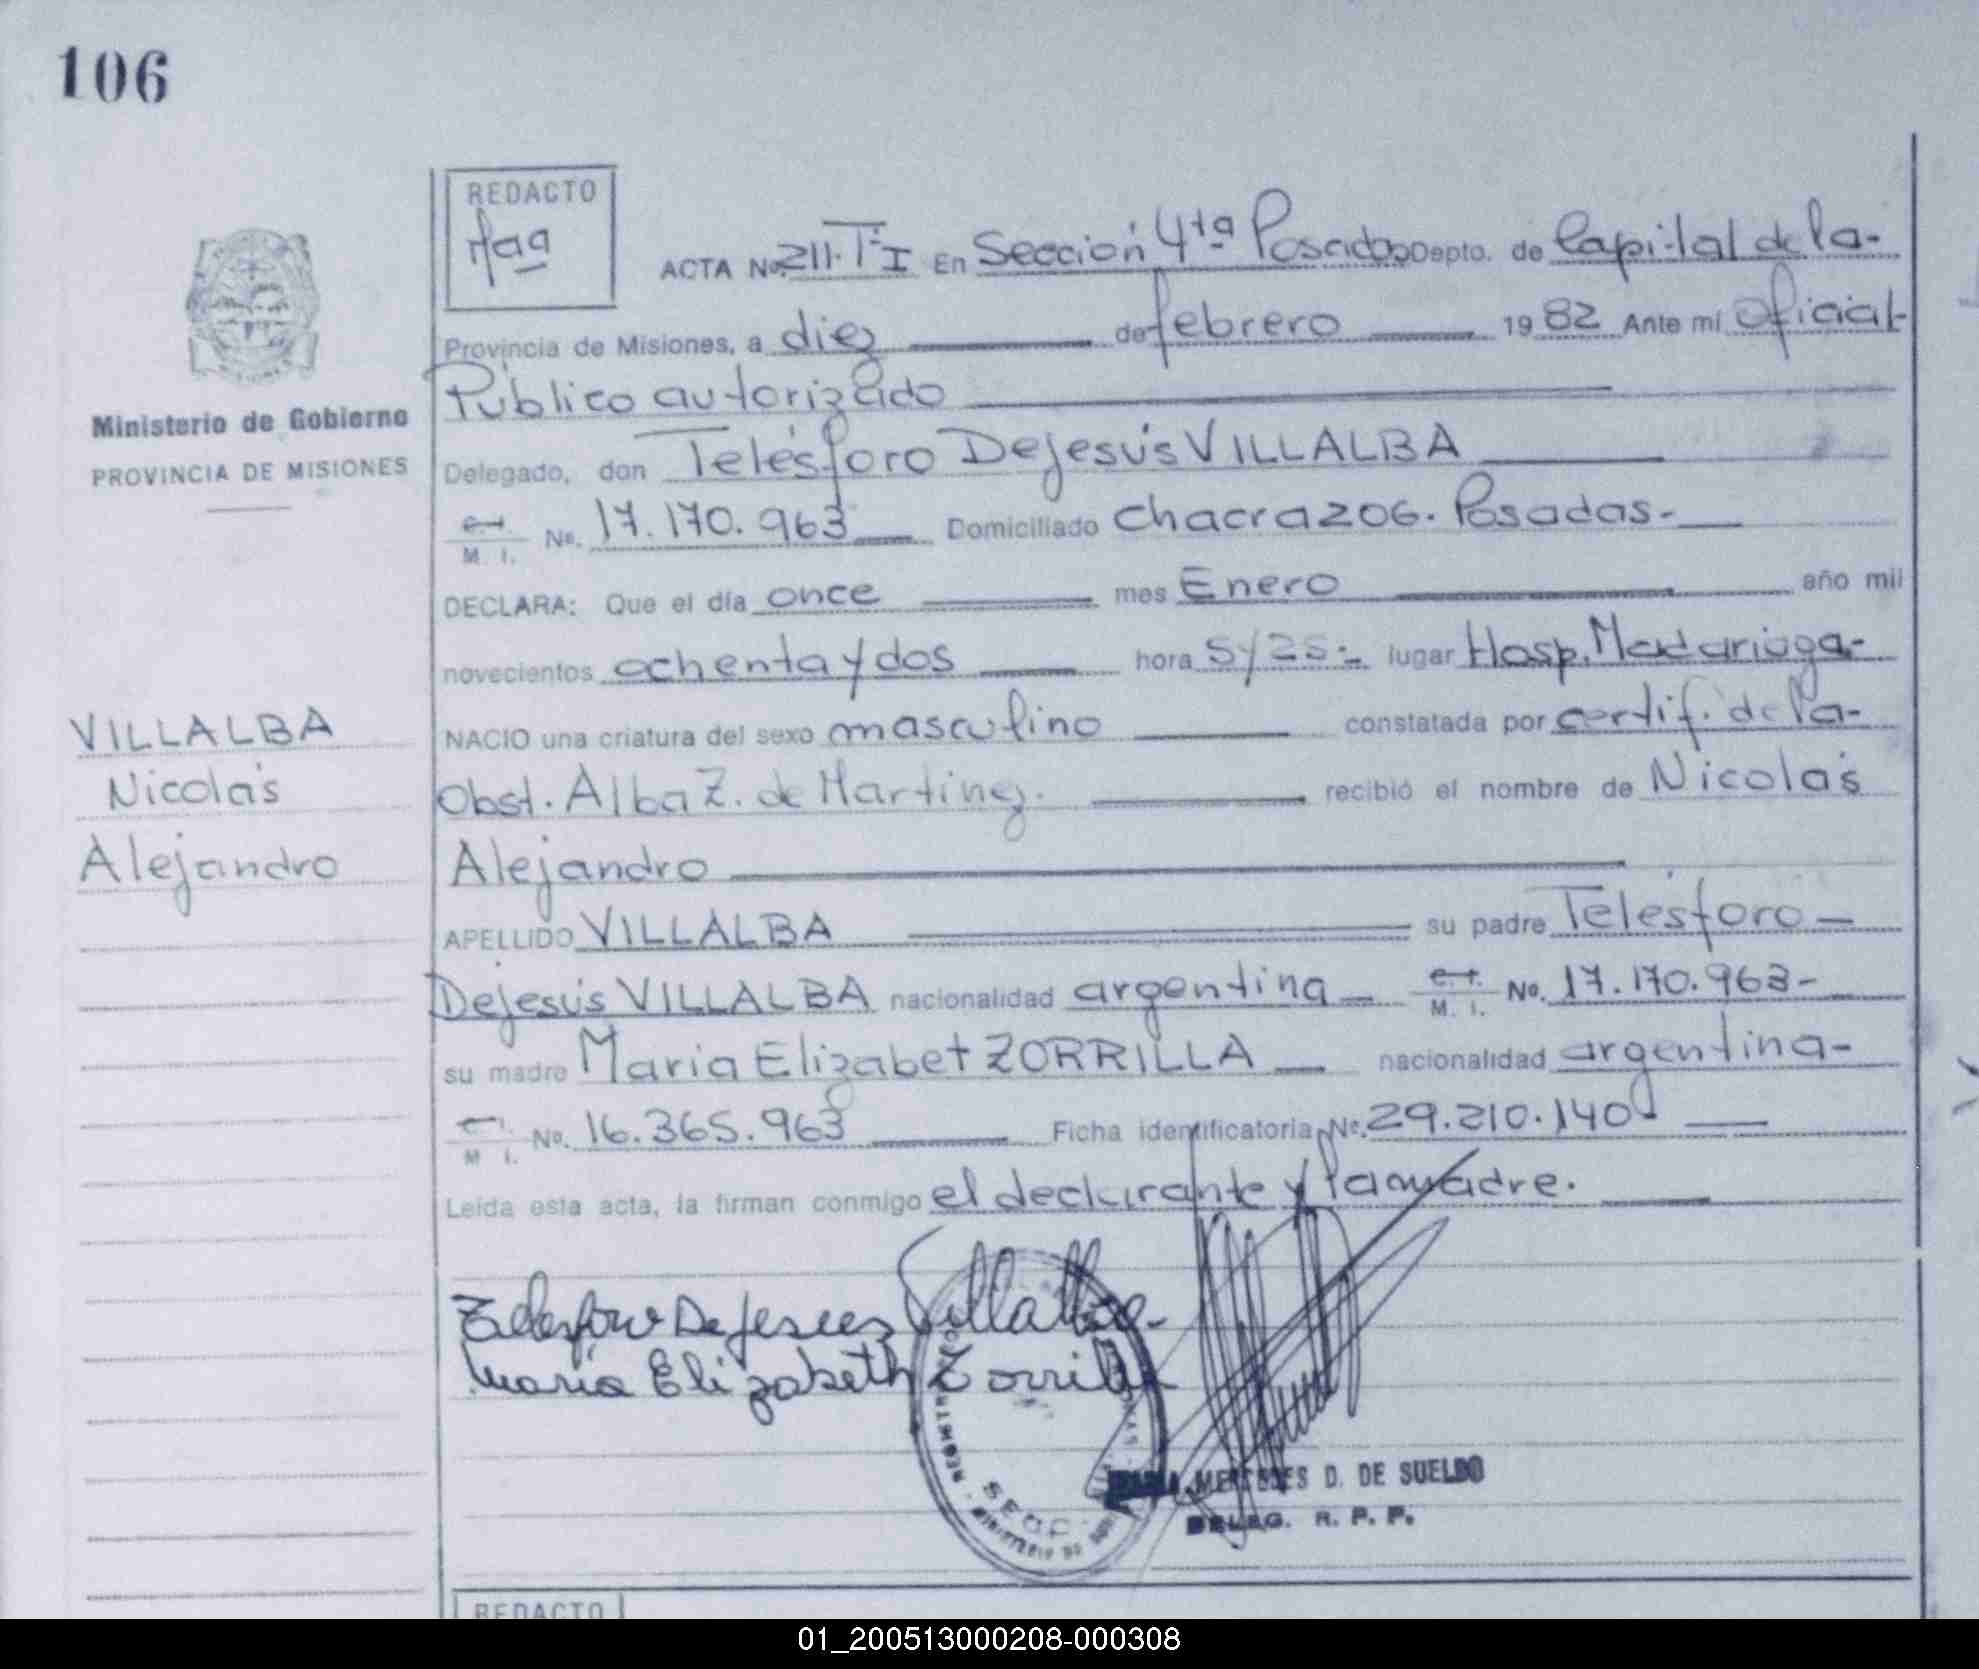 106
REDACTO
ACTA No. 211. Tº I En Sección 4ta Posadas Depto. de Capital de la-
Provincia de Misiones, a diez de febrero 1982 Ante mí Oficial
Ministerio de Gobierno
PROVINCIA DE MISIONES
Público autorizado
Delegado, don Telésforo Dejesús VILLALBA
M. I. No. 17.170.963 Domiciliado Chacra 206. Posadas.-
DECLARA: Que el día once mes Enero año mil
novecientos ochenta y dos hora 5y25.- lugar Hosp. Madariaga-
NACIO una criatura del sexo masculino constatada por certif. de la-
Obst. Alba Z. de Martinez. recibió el nombre de Nicolás
Alejandro
VILLALBA
Nicolás
Alejandro
APELLIDO VILLALBA su padre Telésforo
Dejesús VILLALBA nacionalidad argentina M. I. No. 17.170.963-
su madre Maria Elizabet ZORRILLA nacionalidad argentina-
M. I. No. 16.365.963 Ficha identificatoria No. 29.210.140
Leída esta acta, la firman conmigo el declarante y la madre.
Telesforo Dejesus Villalba
Maria Elizabeth Zorrilla
MERCEDES D. DE SUELDO
DELEG. R. P. P.
REDACTO
01_200513000208-000308